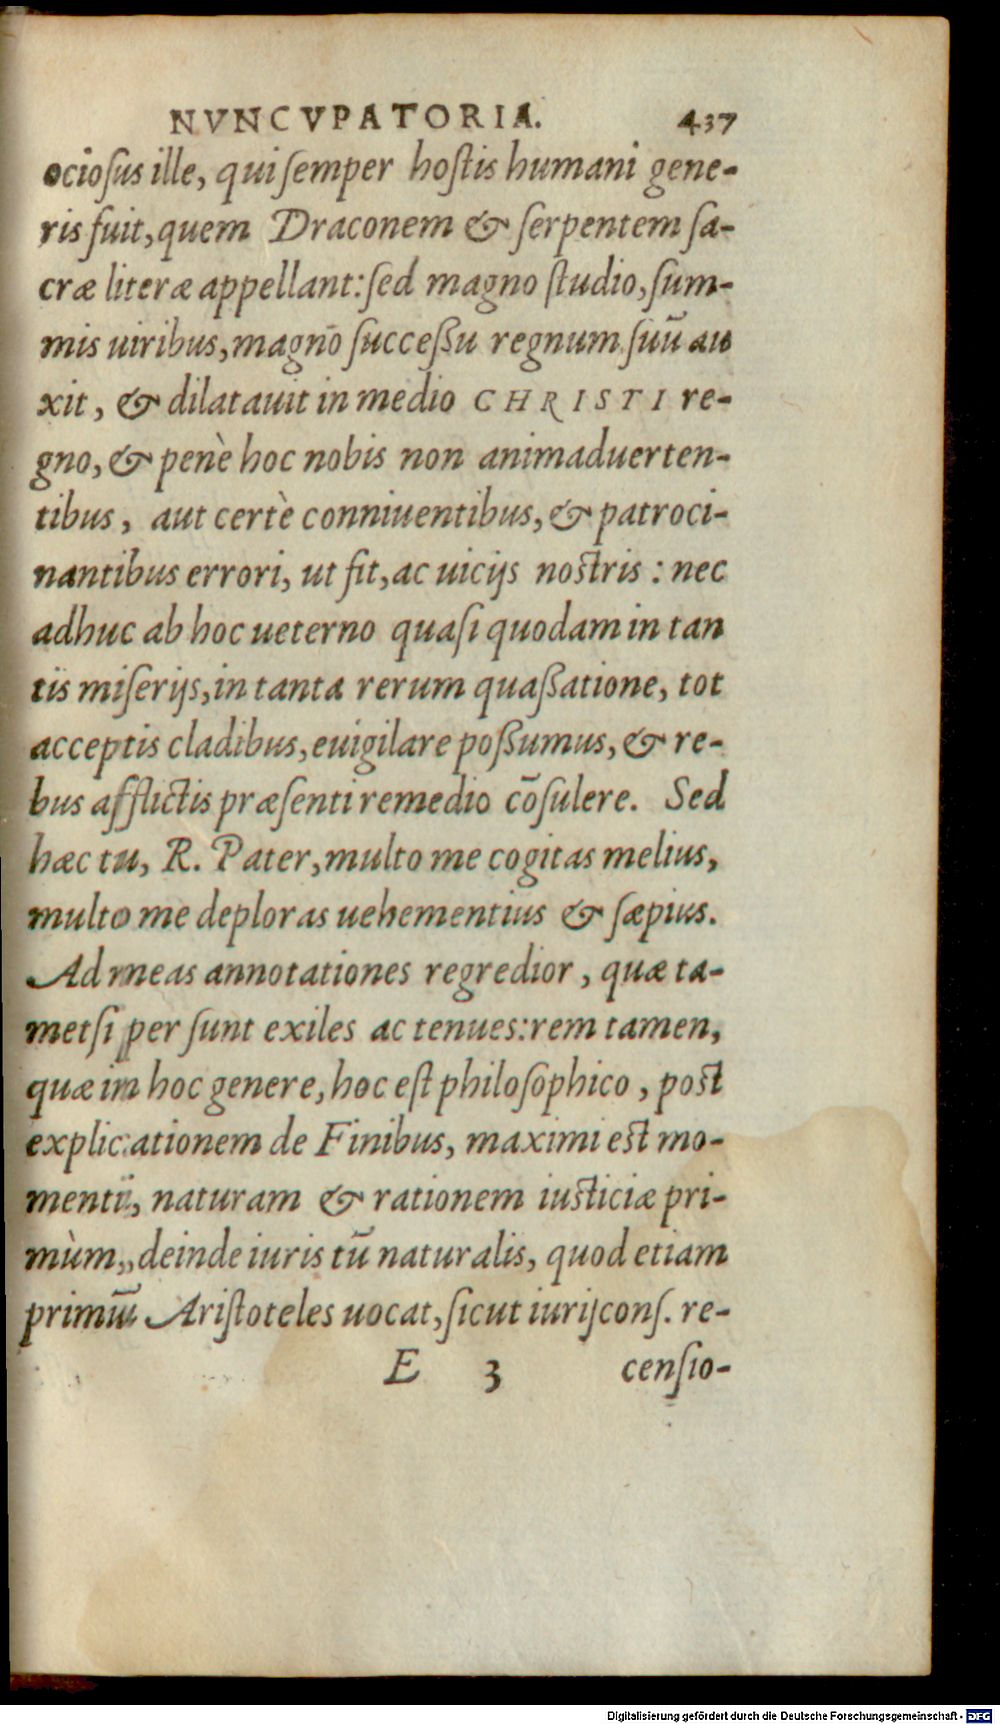 NVNCVPATORIA. 437
ociosus ille, qui semper hostis humani gene-
ris fuit, quem Draconem & serpentem sa-
cræ literæ appellant: sed magno studio, sum-
mis uiribus, magno successu regnum suũ au
xit, & dilatauit in medio CHRISTI re-
gno, & penè hoc nobis non animaduerten-
tibus, aut certè conniuentibus, & patroci-
nantibus errori, ut fit, ac uicijs nostris: nec
adhuc ab hoc ueterno quasi quodam in tan
tis miserijs, in tanta rerum quassatione, tot
acceptis cladibus, euigilare possumus, & re-
bus afflictis præsenti remedio cõsulere. Sed
hæc tu, R. Pater, multo me cogitas melius,
multo me deploras uehementius & sæpius.
Ad meas annotationes regredior, quæ ta-
metsi per sunt exiles ac tenues: rem tamen,
quæ in hoc genere, hoc est philosophico, post
explicationem de Finibus, maximi est mo-
menti, naturam & rationem iusticiæ pri-
mùm, deinde iuris tũ naturalis, quod etiam
primũ Aristoteles uocat, sicut iurijcons. re-
E 3 censio-
Digitalisierung gefördert durch die Deutsche Forschungsgemeinschaft - DFG